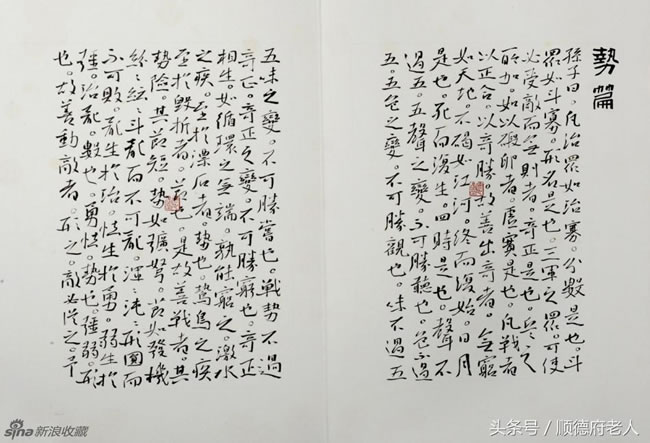 勢篇
孫子曰。凡治眾如治寡。分數是也。斗
眾如斗寡。形名是也。三軍之眾。可使
必受敵而無則者。奇正是也。兵之
所加。如以碬卵者。虛實是也。凡戰者
以正合。以奇勝。故善出奇者。無窮
如天地。不竭如江河。終而復始。日月
是也。死而復生。四時是也。聲不
過五。五聲之變。不可勝聽也。色不過
五。五色之變。不可勝觀也。味不過五
五味之變。不可勝嘗也。戰勢不過
奇正。奇正之變。不可勝窮也。奇正
相生。如循環之無端。孰能窮之。激水
之疾。至於漂石者。勢也。鷙鳥之疾
至於毀折者。節也。是故善戰者。其
勢險。其節短。勢如彍弩。節如發機
紛紛紜紜。斗亂而不可亂。渾渾沌沌。形圓而
不可敗。亂生於治。怯生於勇。弱生於
彊。治亂。數也。勇怯。勢也。彊弱。形
也。故善動敵者。形之。敵必從之。予
sina 新浪收藏
头条号 / 顺德府老人